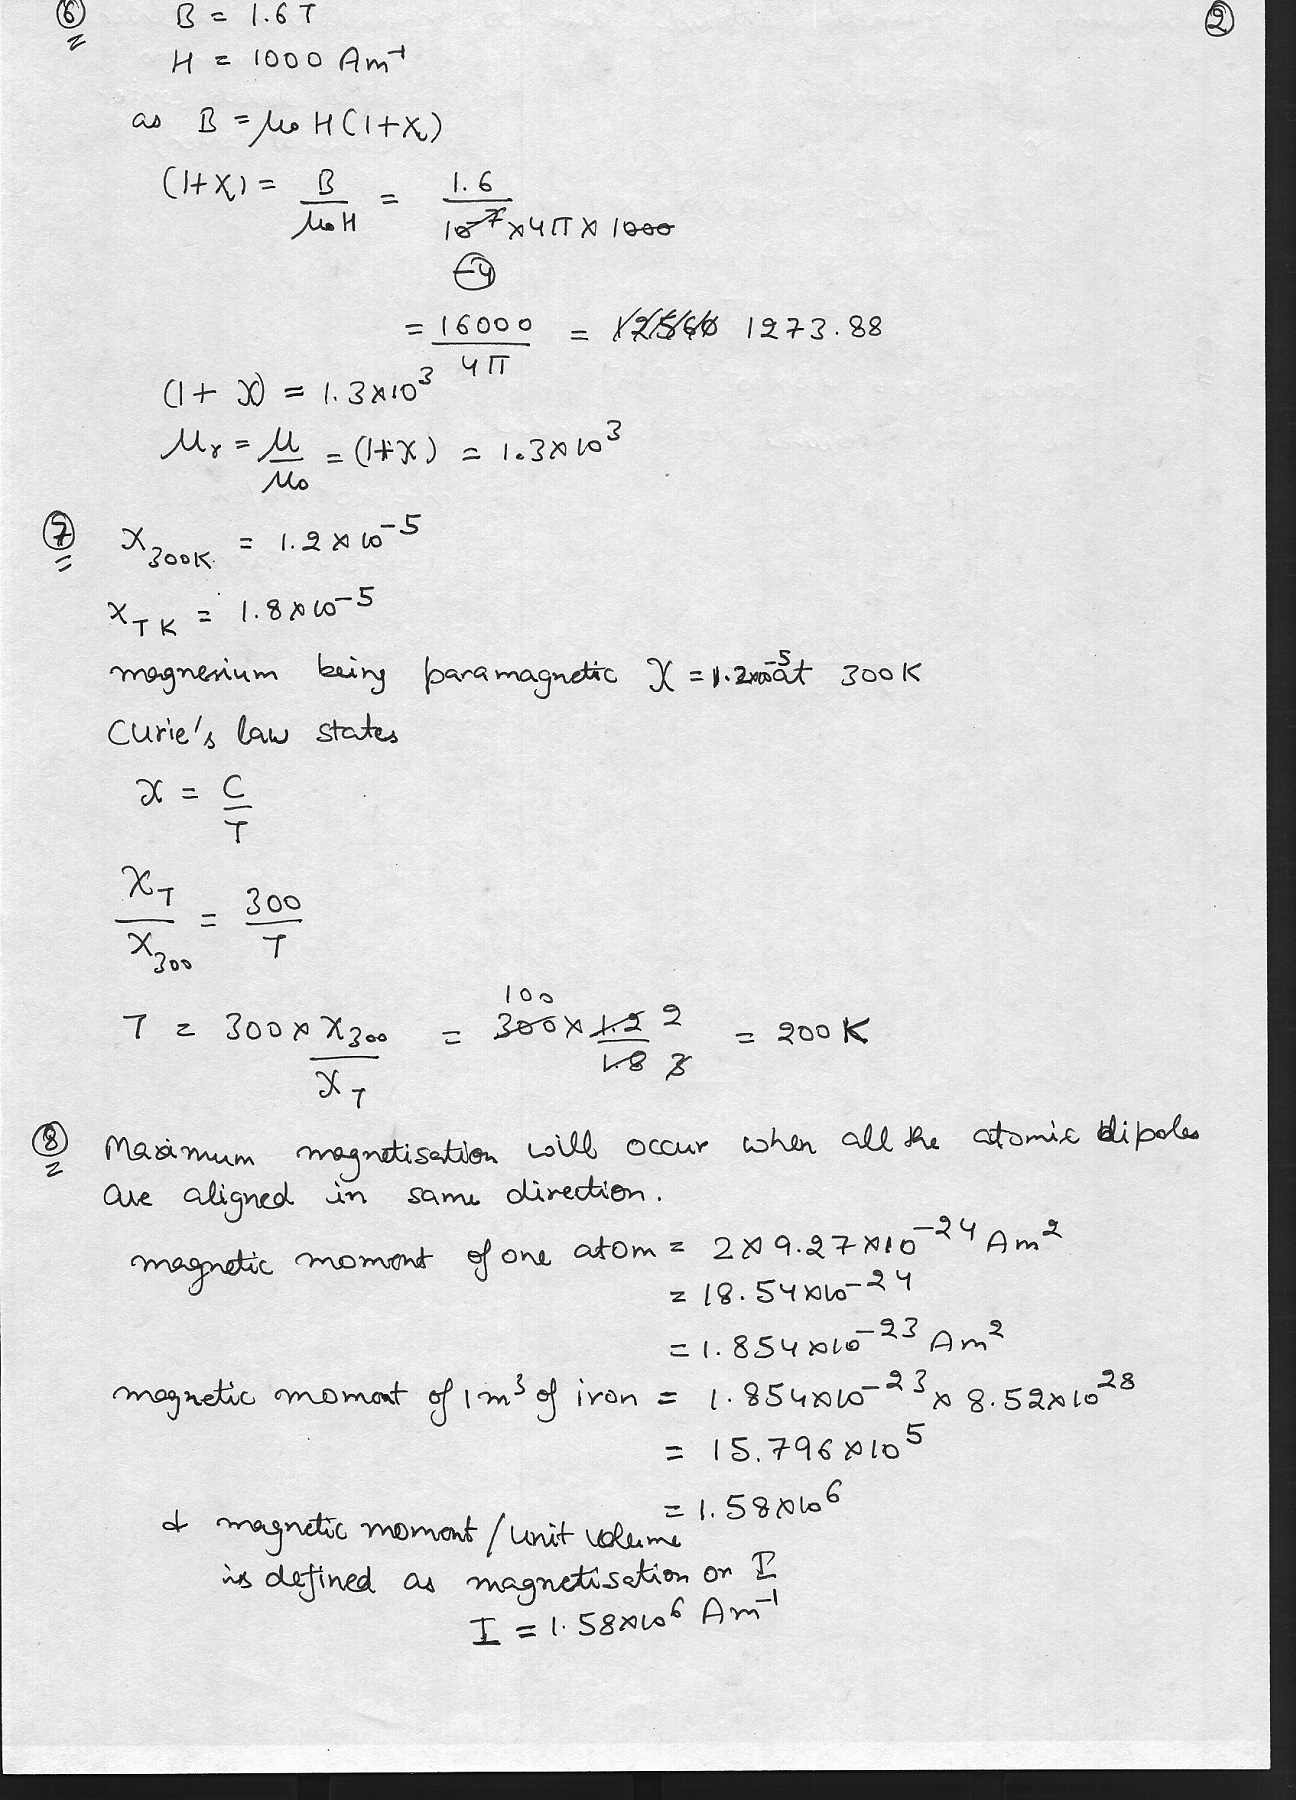 ⑥ B = 1.6 T ②
H = 1000 Am⁻¹
as B = μ₀ H(1+χ)
(1+χ) = B/μ₀H = 1.6/10⁻⁷×4π×1000
-4
= 16000/4π = 12560 1273.88
(1+χ) = 1.3×10³
μr = μ/μ₀ = (1+χ) = 1.3×10³
⑦ χ300K = 1.2×10⁻⁵
χTK = 1.8×10⁻⁵
magnesium being paramagnetic χ = 1.2×10⁻⁵ at 300K
Curie's law states
χ = C/T
χT/χ300 = 300/T
T = 300×χ300/χT = 300 100 × 1.2 2/1.8 3 = 200 K
⑧ Maximum magnetisation will occur when all the atomic dipoles
are aligned in same direction.
magnetic moment of one atom = 2×9.27×10⁻²⁴ Am²
= 18.54×10⁻²⁴
= 1.854×10⁻²³ Am²
magnetic moment of 1m³ of iron = 1.854×10⁻²³ × 8.52×10²⁸
= 15.796×10⁵
= 1.58×10⁶
& magnetic moment/unit volume
is defined as magnetisation or I
I = 1.58×10⁶ Am⁻¹